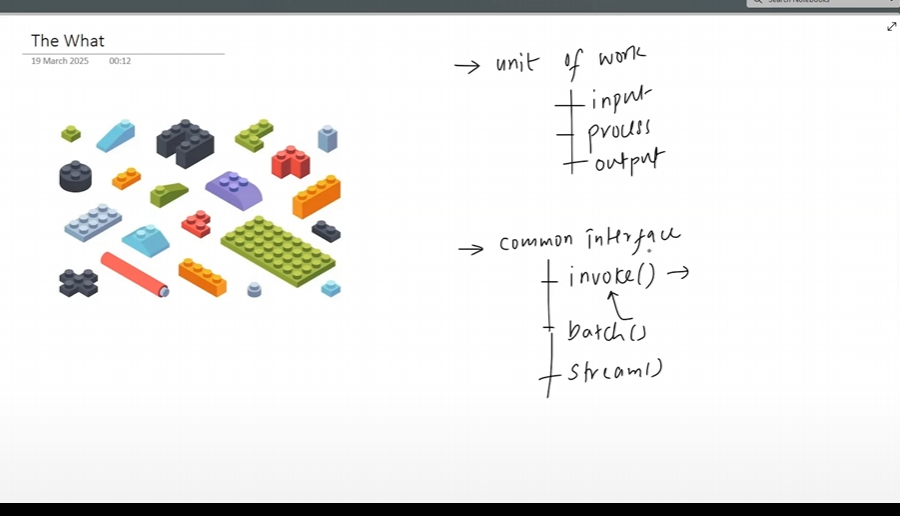 Search Notebooks
The What
19 March 2025 00:12
→ unit of work
input
process
output
→ common interface
invoke() →
batch()
stream()